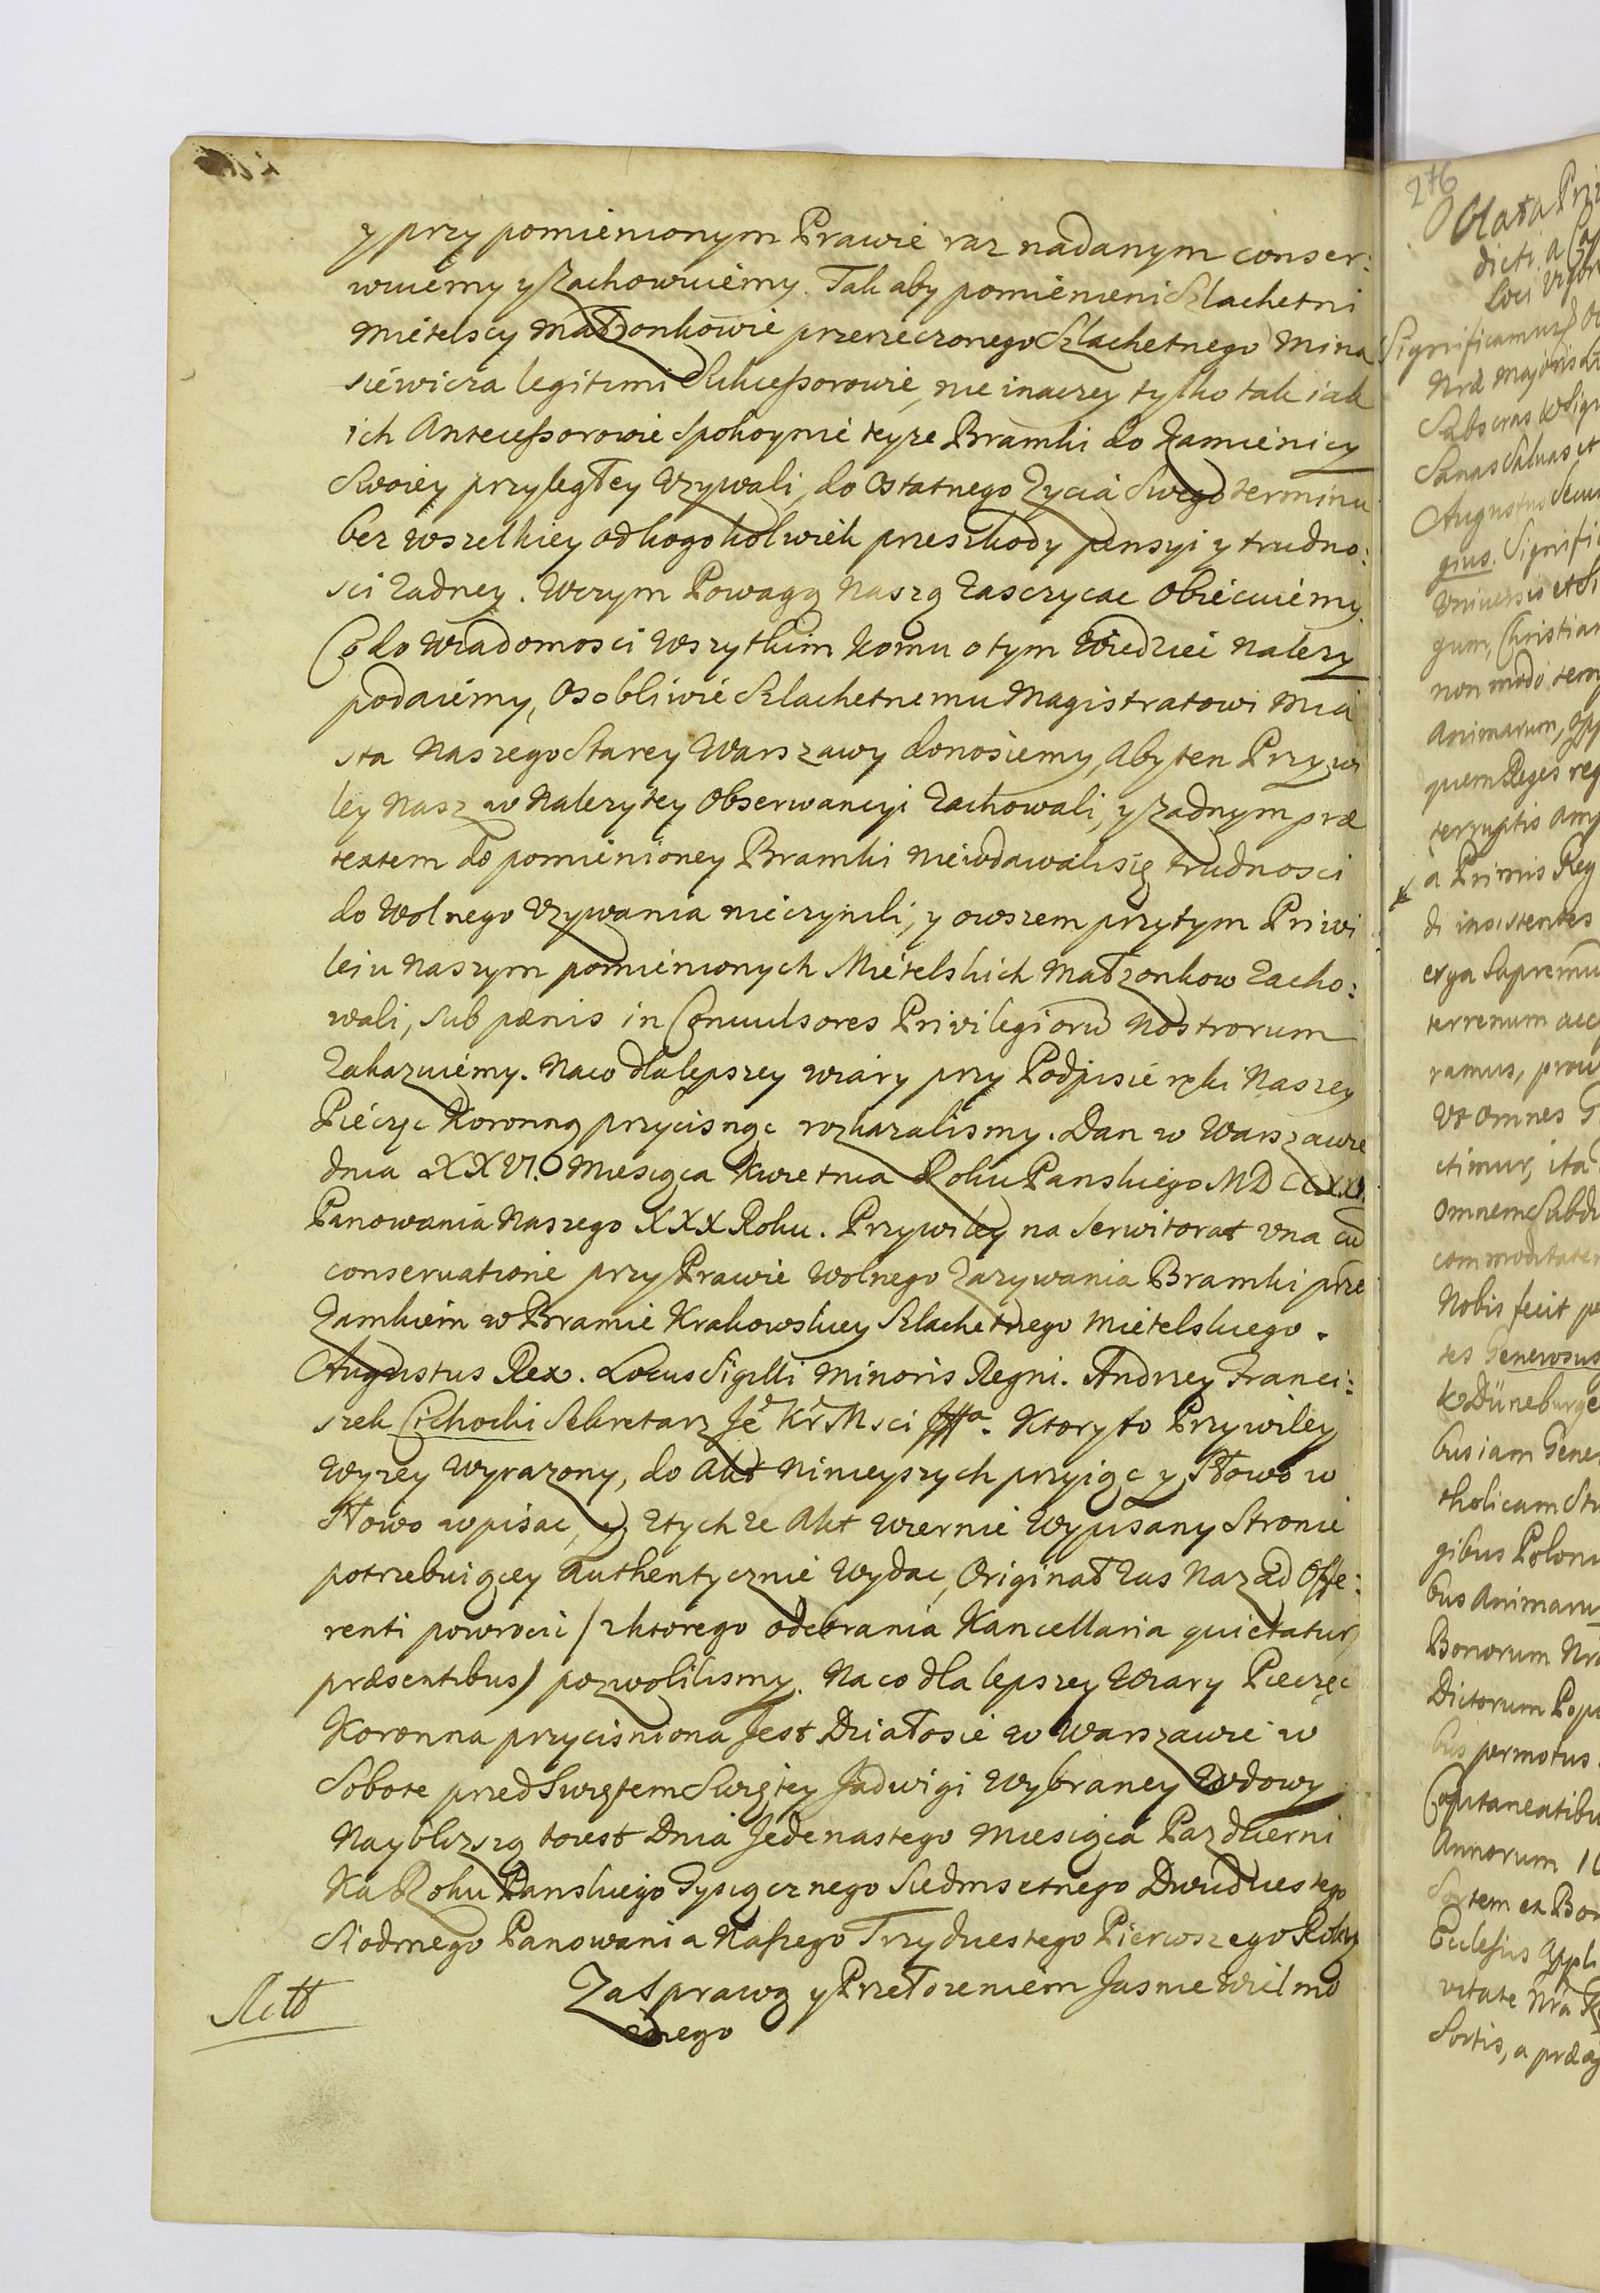 y przy pomienionym Prawie raz nadanym conser:
wuiemy y Zachowuiemy. Tak aby pomienieni Szlachetni
Mietelscy Małzonkowie przerzeczonego Szlachetnego Mina
siewicza legitimi Sukcessorowie, nie inaczey tylko tak iak
ich Antecessorowie Spokoynie teyze Bramki do Kamienicy
Swoiey przyległey Vzywali, do Ostatnego Zycia Swego terminu
bez wszelkiey od kogokolwiek przeszkody pensyi y trudno:
sci Zadney. W czym Powagą Naszą Zasczycac Obiecuiemy.
Co do Wiadomosci Wszytkim Komu o tym Wiedziec Nalezy
podaiemy, Osobliwie Szlachetnemu Magistratowi Mia
sta Naszego Starey Warszawy donosiemy, Aby ten Przywi
ley Nasz w Nalezytey Obserwancyi Zachowali, y Zadnym præ
textem do pomienioney Bramki niewdawali się trudnosci
do Wolnego Vzywania nieczynili, y owszem przytym Priwi
leiu Naszym pomienionych Mietelskich Małzonkow Zacho:
wali, sub pœnis in Convulsores Privilegioru Nostrorum
Zakazuiemy. Naco dla lepszey wiary przy Podpisie ręki Naszey
Pieczęc Koronną przycisnąc rozkazalismy. Dan w Warszawie
dnia XXVI.O Miesiąca Kwietnia Roku Panskiego MDCCXXVI.
Panowania Naszego XXX Roku. Przywiley na Serwitorat vna cu
conservatione przy Prawie Wolnego Zazywania Bramki prze
Zamkiem w Bramie Krakowskiey Szlachetnego Mietelskiego.
Augustus Rex. Locus Sigilli Minoris Regni. Andrzey Franci:
szek Cichocki Sekretarz Je Kr Msci. Ktory to Przywiley
Wyzey Wyrazony, do Akt Ninieyszych przyiąc y Słowo w
Słowo wpisac, y z tychze Akt Wiernie Wypisany Stronie
potrzebuiącey Authentycznie Wydac, Originał Zas Nazad Offe:
renti powrocic / z ktorego odebrania Kancellaria quietatur
præsentibus / pozwolilismy. Na co dla lepszey Wiary Pieczęc
Koronna przycisniona Jest Działosie w Warszawie w
Sobote przed Swiętem Swiętey Jadwigi Wybraney Wdowy
Nayblizszą to iest Dnia Jedenastego Miesiąca Pazdzierni
Ka Roku Panskiego Tysiącznego Siedmsetnego Dwudziestego
Siodmego Panowania Naszego Trzydziestego Pierwszego Roku
Za Sprawą y Przełozeniem Jasnie Wielmo
znego
276
Oblata Pri
dicti a
Loci
Significamus
Nræ Majoris
Sanas Saluas et
Augustus Secu
gius. Signifi
Vniversis et Si
gum, Christian
non modo tem
Animarum, opp
quem Reges reg
terruptis am
a Primis Reg
di insistentes
erga Supremu
terrenum acc
ramus, prou
Vt omnes
ctimur, ita
Omnem Subdi
commoditatem
Nobis fecit pe
tes Generosus
Düneburge
bus iam Gene
tholicam Stu
gibus Polon
bus Animaru
Bonorum Nro
Dictorum Popu
bus permotus
Capitaneatibu
Annorum 1
Sortem ex Bon
Ecclesiis Appli
vitate Nra
Sortis, a præ